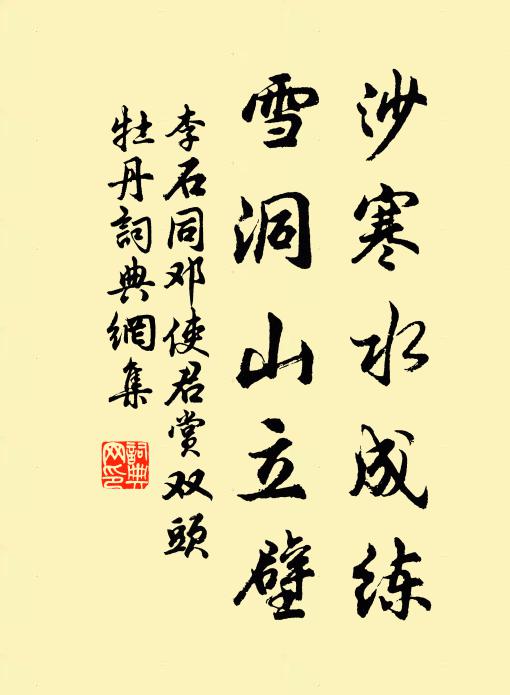 沙寒水成练
雪洞山立壁
李石同邓使君赏双頭
牡丹詞典網集
詞典网印